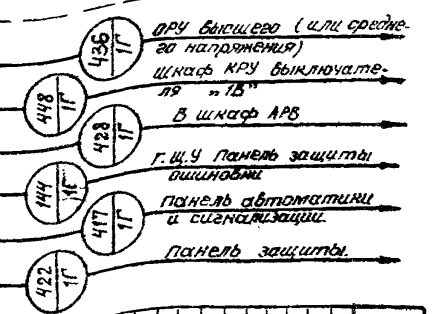 ОРУ высшего (или средне-
го напряжения)
436
1Г
шкаф КРУ выключате-
ля „1В"
448
1Г
В шкаф АРВ
428
1Г
Г.Щ.У панель защиты
ошиновки
144
1Г
панель автоматики
и сигнализации
417
1Г
панель защиты.
422
1Г